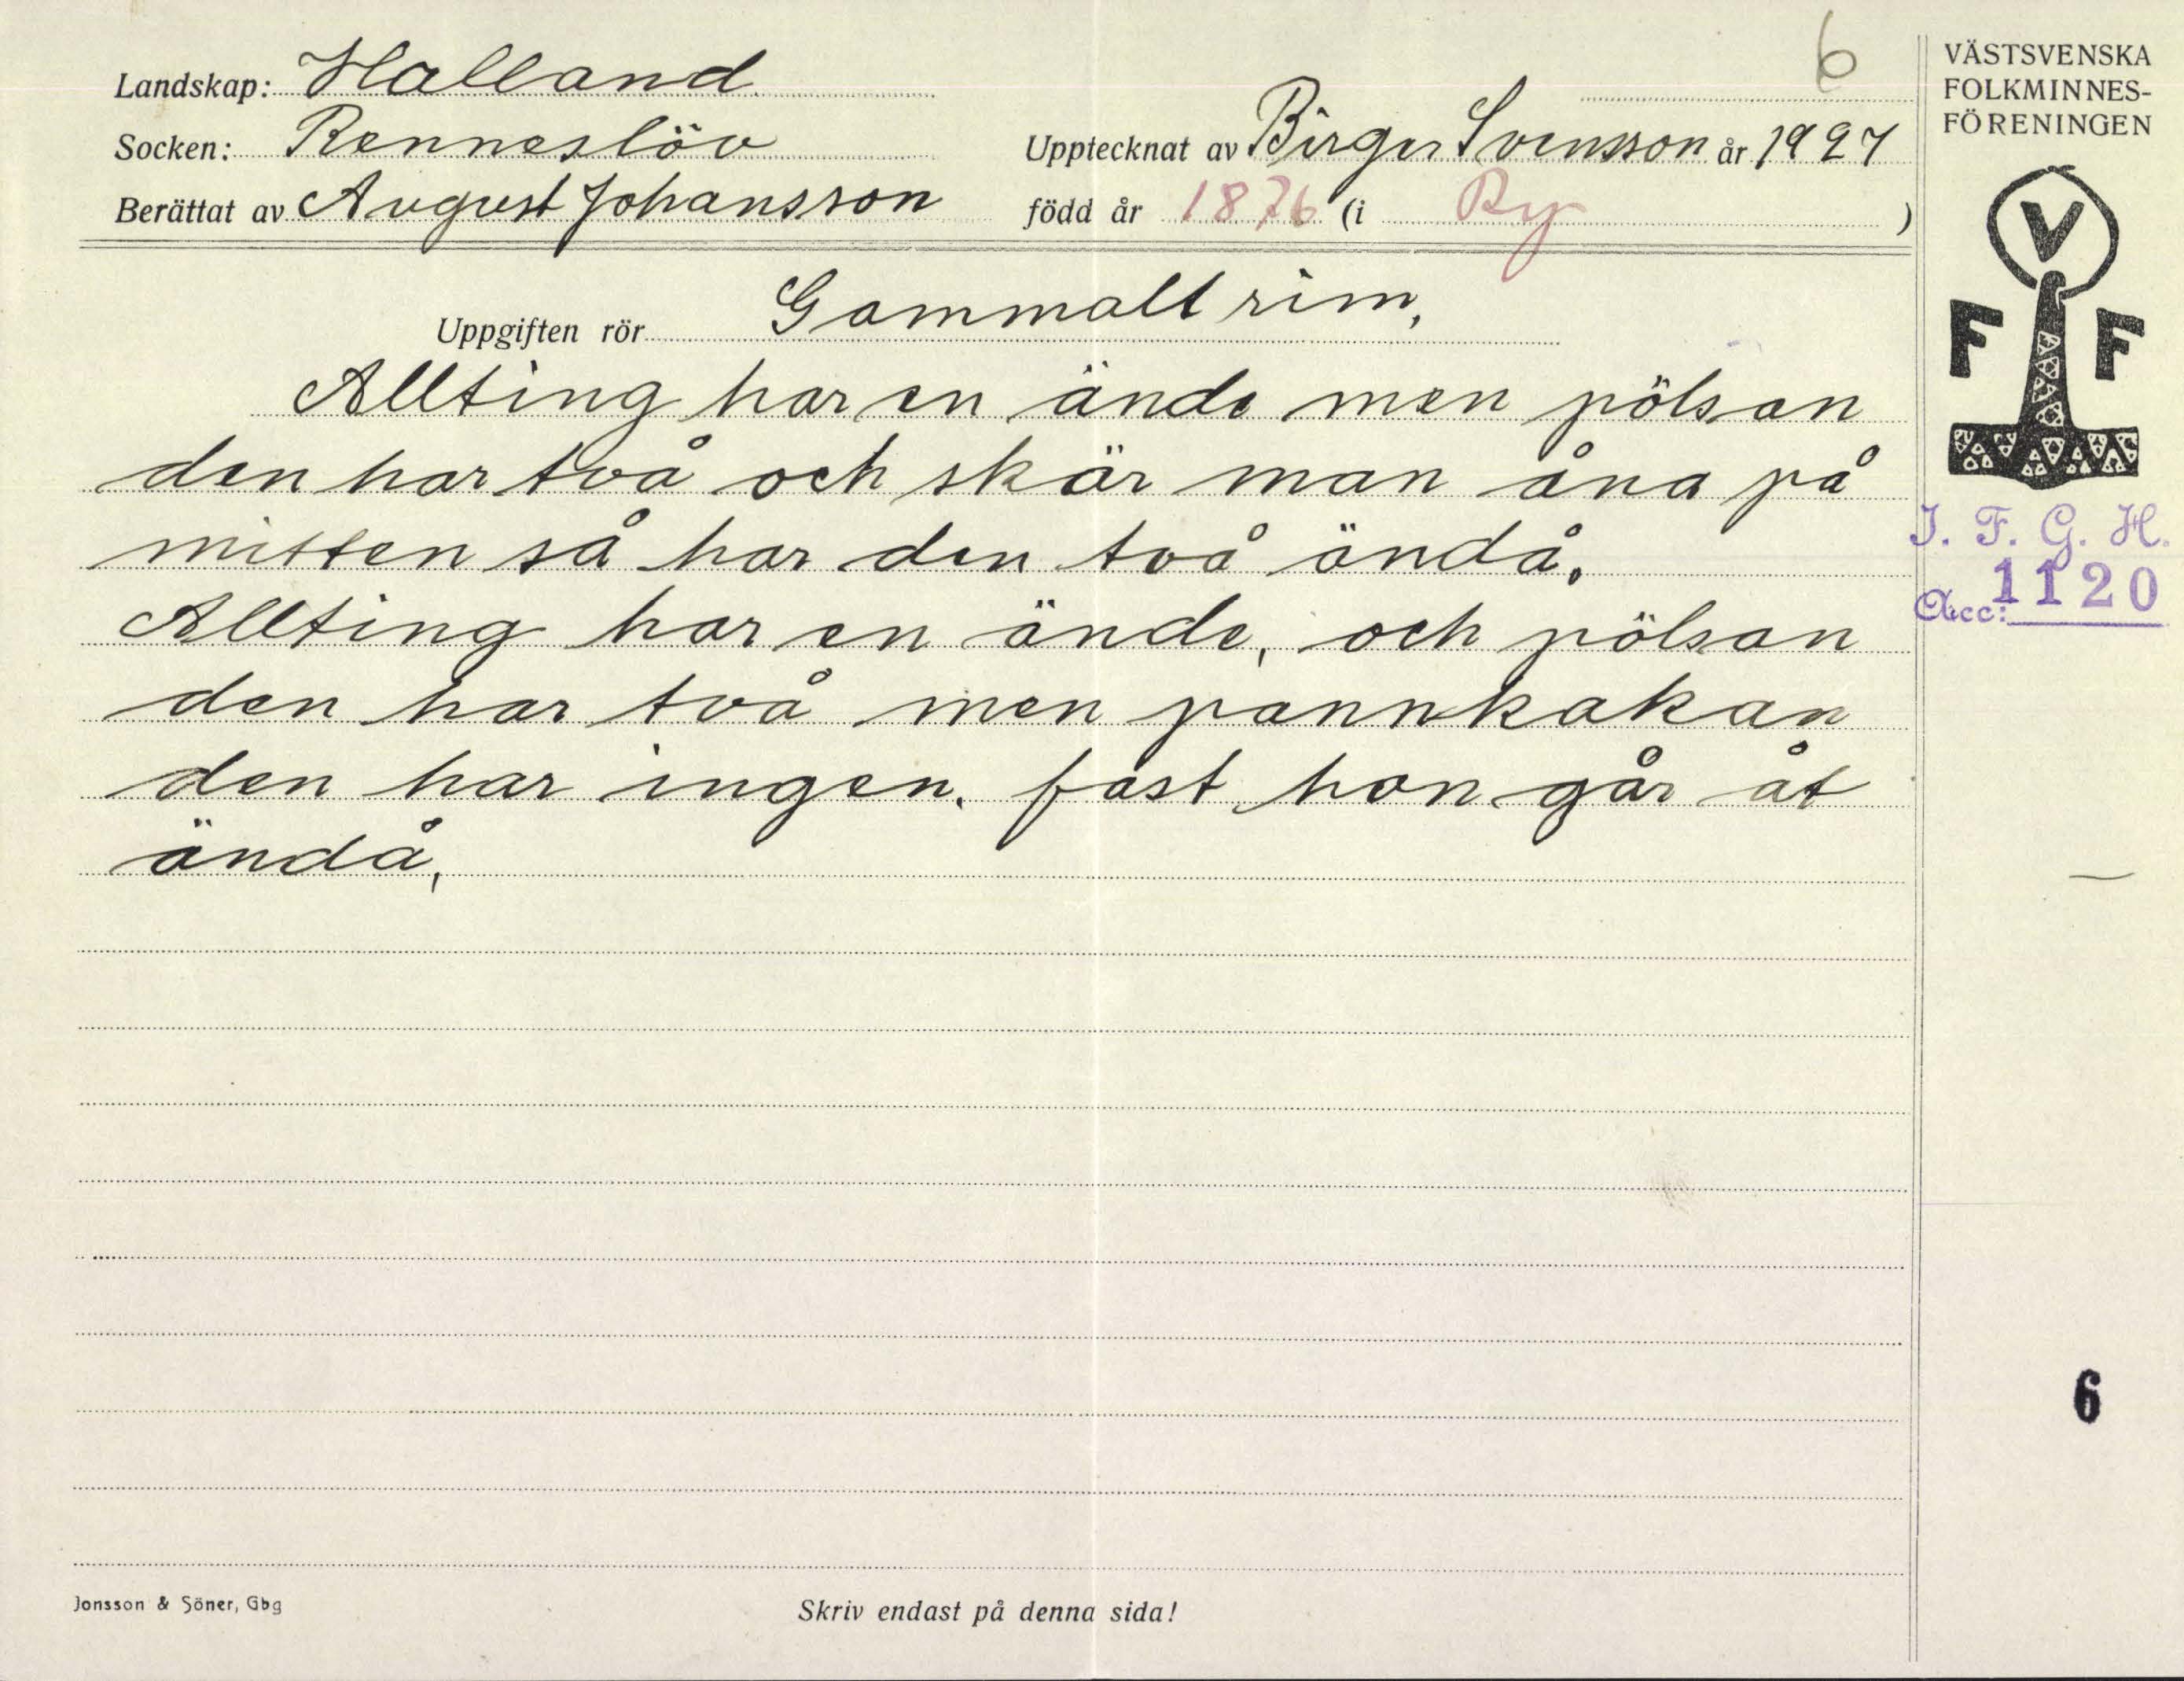 6
Landskap: Halland
Socken: Renneslöv
Upptecknat av Birger Svensson år 1927
Berättat av August Johansson
född år 1876 (i Ry )
Uppgiften rör Gammalt rim,
Allting har en ände men pölsan
den har två och skär man åna på
mitten så har den två ändå.
Allting har en ände, och pölsan
den har två men pannkakan
den har ingen. fast hon går åt
ändå,
Jonsson & Söner, Gbg
Skriv endast på denna sida!
VÄSTSVENSKA
FOLKMINNES-
FÖRENINGEN
V
F F
I. F. G. H.
Acc: 1120
6